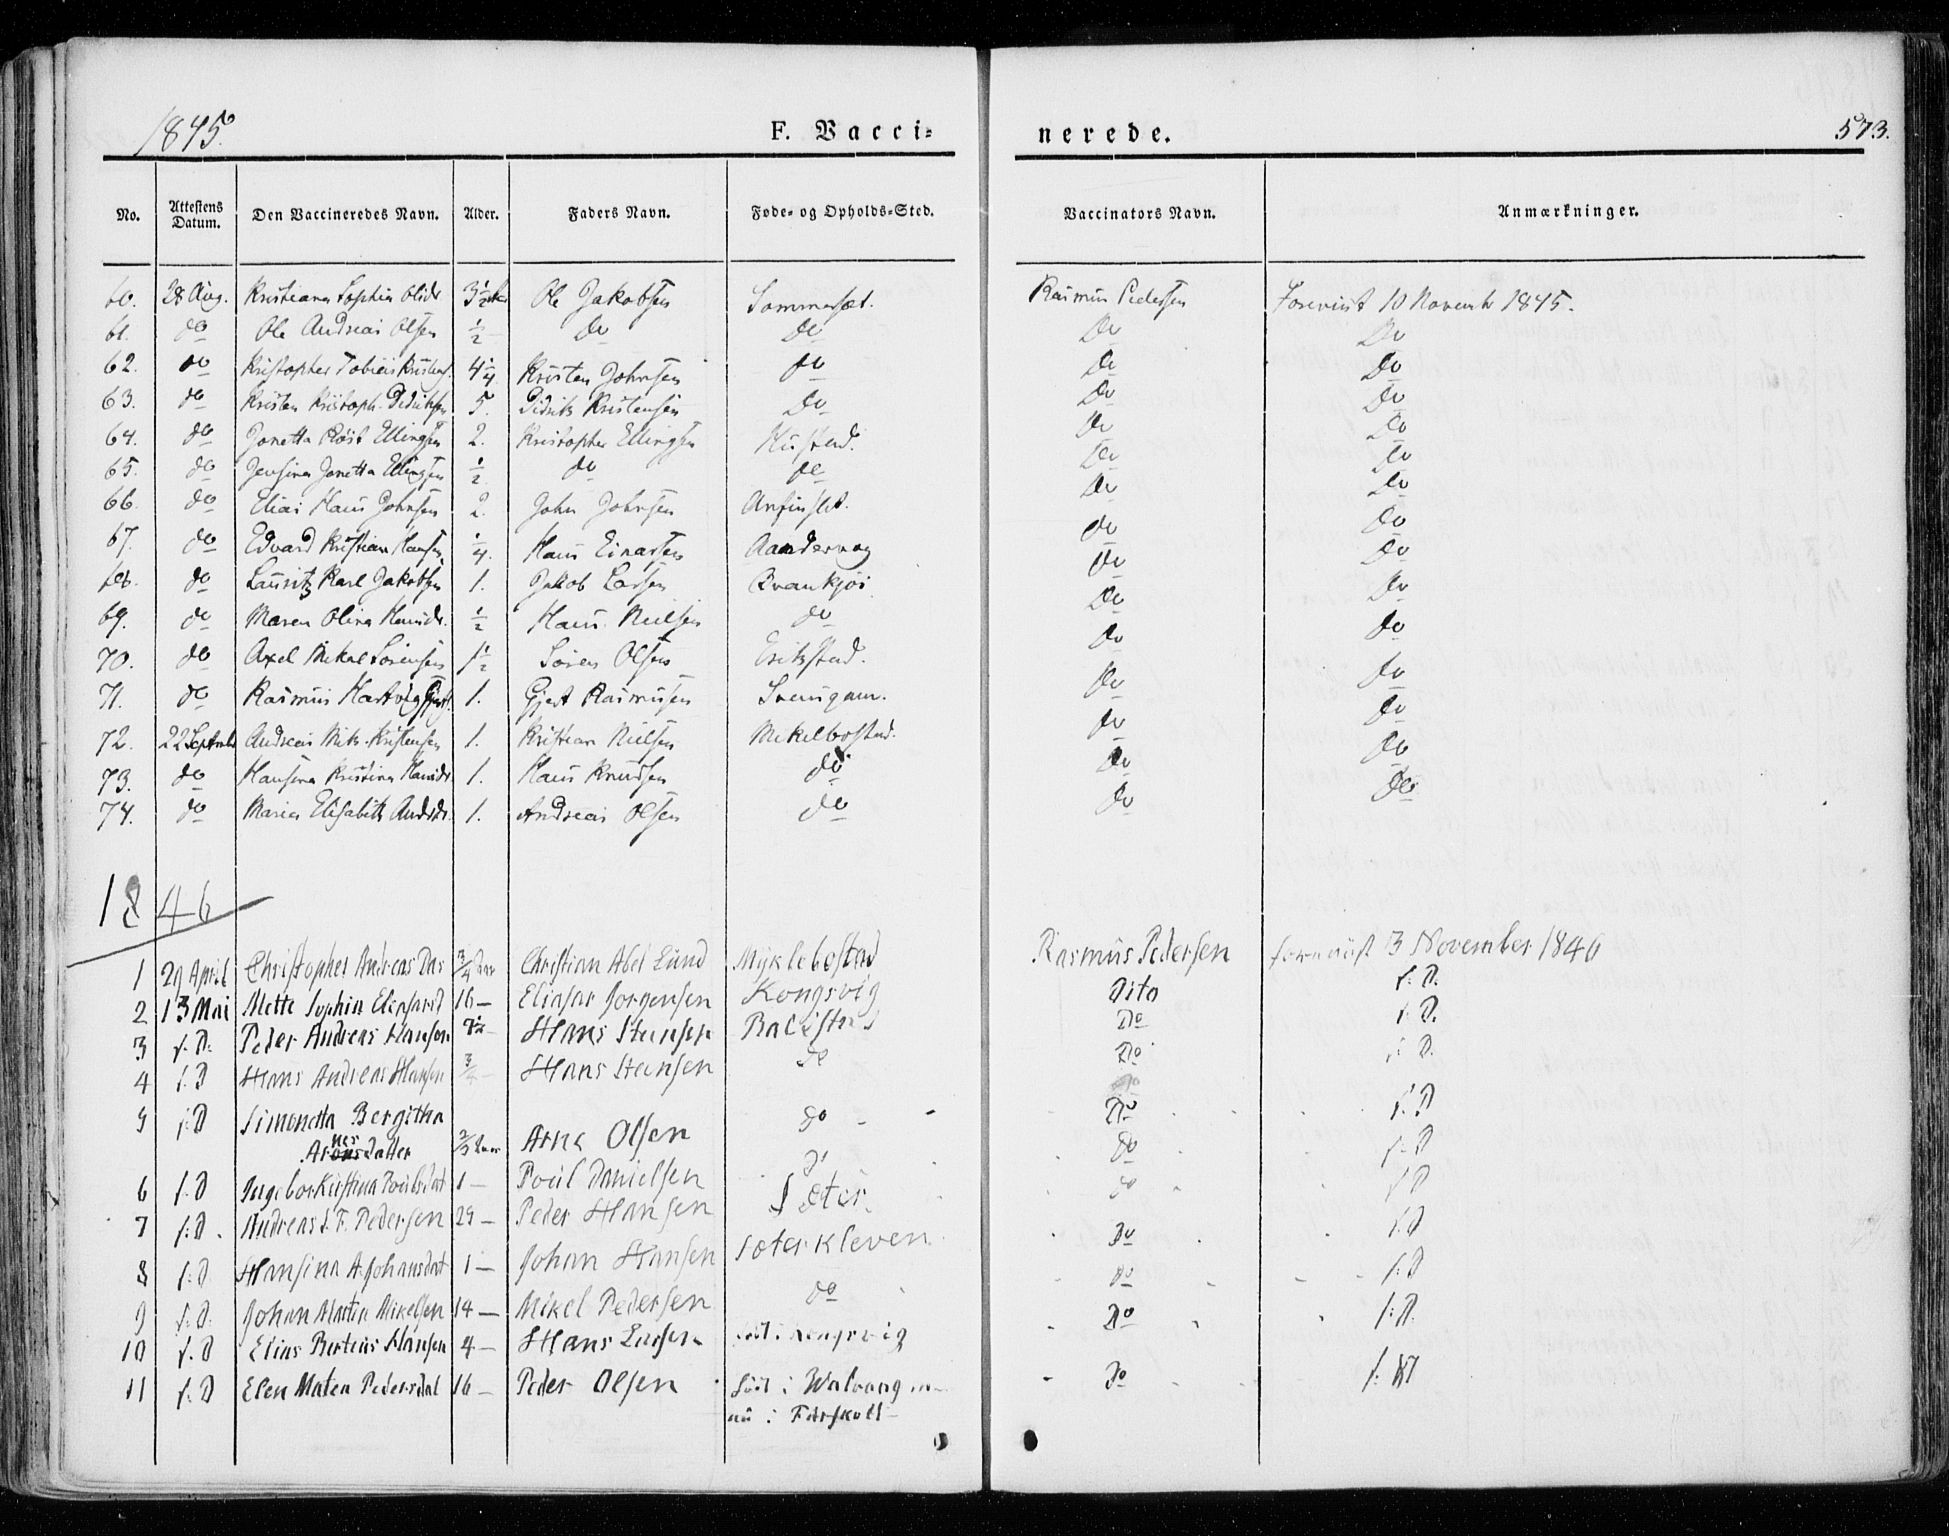 1845. F. Vacci= nerede. 573.
No. Attestens Datum. Den Vaccineredes Navn. Alder. Faders Navn. Føde- og Opholds-Sted. Vaccinators Navn. Anmærkninger.
60. 28 Aug. Kristiana Sophia Olsdr 3½ Ole Jakobsen Sommerset. Rasmus Pedersen Foreviist 10 Novembr 1845.
61. do Ole Andreas Olsen ½ do do Do Do
62. do Kristopher Tobias Kristens. 4¼ Kristen Johnsen do Do Do
63. do Kristen Kristoph. Didriksen 5. Didrik Kristensen Do Do Do
64. do Jonetta Röst Ellingsen 2. Kristopher Ellingsen Hustad. Do Do
65. do Jensina Jonetta Ellingsen ½ do do Do Do
66. do Elias Hans Johnsen 2. John Johnsen Anfinslet. Do Do
67. do Edvard Kristian Hansen ¼. Hans Einarsen Aandervag Do Do
68. do Lauritz Karl Jakobsen 1. Jakob Larsen Qvankjos. Do Do
69. do Maren Olina Hansdr. ½ Hans Nielsen do Do Do
70. do Axel Mikal Sörensen 1½ Sören Olsen Erikstad. Do do
71. do Rasmus Hartvig Gjerts. 1. Gjert Rasmusen Svensgam. Do do
72. 22 Septembr Andreas Nik. Kristensen 1. Kristian Nielsen Mikelbostad. Do Do
73. do Hansina Kristina Hansdr. 1. Hans Knudsen do Do Do
74. do Maria Elisabeth Andrdr. 1. Andreas Olsen do Do Do
1846
1 29 April Christopher Andreas Das ¾ Aar Christian Abel Lund Myklebostad Rasmus Pedersen foreviist 3 November 1846
2 13 Mai Mette Sophia Eliasard 16 — Eliasar Jorgensen Kongsvig Dito s: D.
3 s: D: Peder Andreas Hansen Hans Hansen Do s: D.
4 s: D Hans Andreas Hansen ¾ — Hans Hansen do Do s: D.
5 s: D Simonetta Bergitha do Do s: D
Arnesdatter ⅔ Aar Arne Olsen do s: D
6 s: D Ingebor Kirstina Poulsdat 1 — Poul Danielsen do do s: D
7 s: D. Andreas S. F. Pedersen 29 — Peder Hansen Sæter. Do s: D
8 s: D. Hansina A. Johansdat 1 — Johan Hansen Sæterkleven do s: D
9 s: D. Johan Martin Mikelsen 14 — Mikel Pedersen do Do s: D.
10 s: D Elias Berteus Hansen 4 — Hans Larsen föd i Kongsvig
11 s: D Elen Maten Pedersdat 16 — Peder Olsen föd i Do s: D
nu i